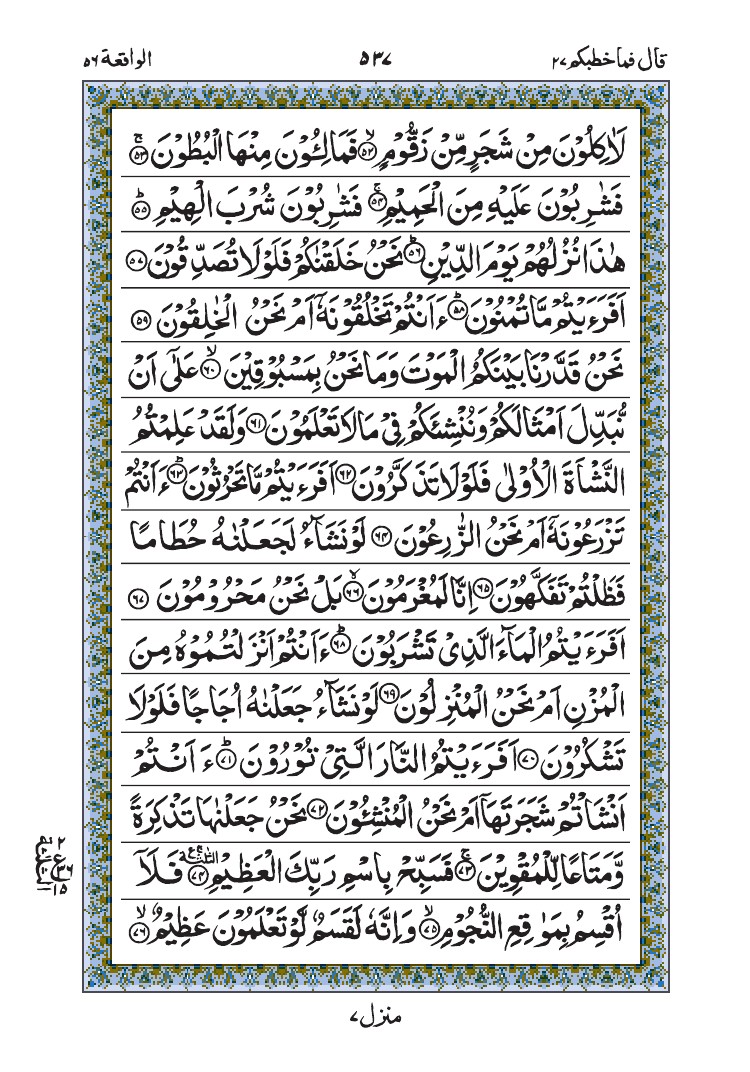 قال فما خطبكم ٢٧
٥٣٧
الواقعة ٥٦
لَاٰكِلُوۡنَ مِنۡ شَجَرٍ مِّنۡ زَقُّوۡمٍۙ‏﴿۵۲﴾ فَمَالِـُٔوۡنَ مِنۡهَا الۡبُطُوۡنَ‌ۚ‏﴿۵۳﴾
فَشٰرِبُوۡنَ عَلَيۡهِ مِنَ الۡحَمِيۡمِ‌ۚ‏﴿۵۴﴾ فَشٰرِبُوۡنَ شُرۡبَ الۡهِيۡمِؕ‏﴿۵۵﴾
هٰذَا نُزُلُهُمۡ يَوۡمَ الدِّيۡنِؕ‏﴿۵۶﴾ نَحۡنُ خَلَقۡنٰكُمۡ فَلَوۡلَا تُصَدِّقُوۡنَ‏﴿۵۷﴾
اَفَرَءَيۡتُمۡ مَّا تُمۡنُوۡنَؕ‏﴿۵۸﴾ ءَاَنۡتُمۡ تَخۡلُقُوۡنَهٗۤ اَمۡ نَحۡنُ الۡخٰلِقُوۡنَ‏﴿۵۹﴾
نَحۡنُ قَدَّرۡنَا بَيۡنَكُمُ الۡمَوۡتَ وَمَا نَحۡنُ بِمَسۡبُوۡقِيۡنَۙ‏﴿۶۰﴾ عَلٰٓى اَنۡ
نُّبَدِّلَ اَمۡثَالَكُمۡ وَنُنۡشِئَكُمۡ فِىۡ مَا لَا تَعۡلَمُوۡنَ‏﴿۶۱﴾ وَلَقَدۡ عَلِمۡتُمُ
النَّشۡاَةَ الۡاُوۡلٰى فَلَوۡلَا تَذَكَّرُوۡنَ‏﴿۶۲﴾ اَفَرَءَيۡتُمۡ مَّا تَحۡرُثُوۡنَؕ‏﴿۶۳﴾ ءَاَنۡتُمۡ
تَزۡرَعُوۡنَهٗۤ اَمۡ نَحۡنُ الزّٰرِعُوۡنَ‏﴿۶۴﴾ لَوۡ نَشَآءُ لَجَعَلۡنٰهُ حُطَامًا
فَظَلۡتُمۡ تَفَكَّهُوۡنَ‏﴿۶۵﴾ اِنَّا لَمُغۡرَمُوۡنَۙ‏﴿۶۶﴾ بَلۡ نَحۡنُ مَحۡرُوۡمُوۡنَ‏﴿۶۷﴾
اَفَرَءَيۡتُمُ الۡمَآءَ الَّذِىۡ تَشۡرَبُوۡنَؕ‏﴿۶۸﴾ ءَاَنۡتُمۡ اَنۡزَلۡتُمُوۡهُ مِنَ
الۡمُزۡنِ اَمۡ نَحۡنُ الۡمُنۡزِلُوۡنَ‏﴿۶۹﴾ لَوۡ نَشَآءُ جَعَلۡنٰهُ اُجَاجًا فَلَوۡلَا
تَشۡكُرُوۡنَ‏﴿۷۰﴾ اَفَرَءَيۡتُمُ النَّارَ الَّتِىۡ تُوۡرُوۡنَؕ‏﴿۷۱﴾ ءَاَنۡتُمۡ
اَنۡشَاۡتُمۡ شَجَرَتَهَاۤ اَمۡ نَحۡنُ الۡمُنۡشِـُٔوۡنَ‏﴿۷۲﴾ نَحۡنُ جَعَلۡنٰهَا تَذۡكِرَةً
وَّمَتَاعًا لِّلۡمُقۡوِيۡنَ‌ۚ‏﴿۷۳﴾ فَسَبِّحۡ بِاسۡمِ رَبِّكَ الۡعَظِيۡمِ‏﴿۷۴﴾ فَلَاۤ
اُقۡسِمُ بِمَوٰقِعِ النُّجُوۡمِۙ‏﴿۷۵﴾ وَاِنَّهٗ لَقَسَمٌ لَّوۡ تَعۡلَمُوۡنَ عَظِيۡمٌۙ‏﴿۷۶﴾
منزل ٧